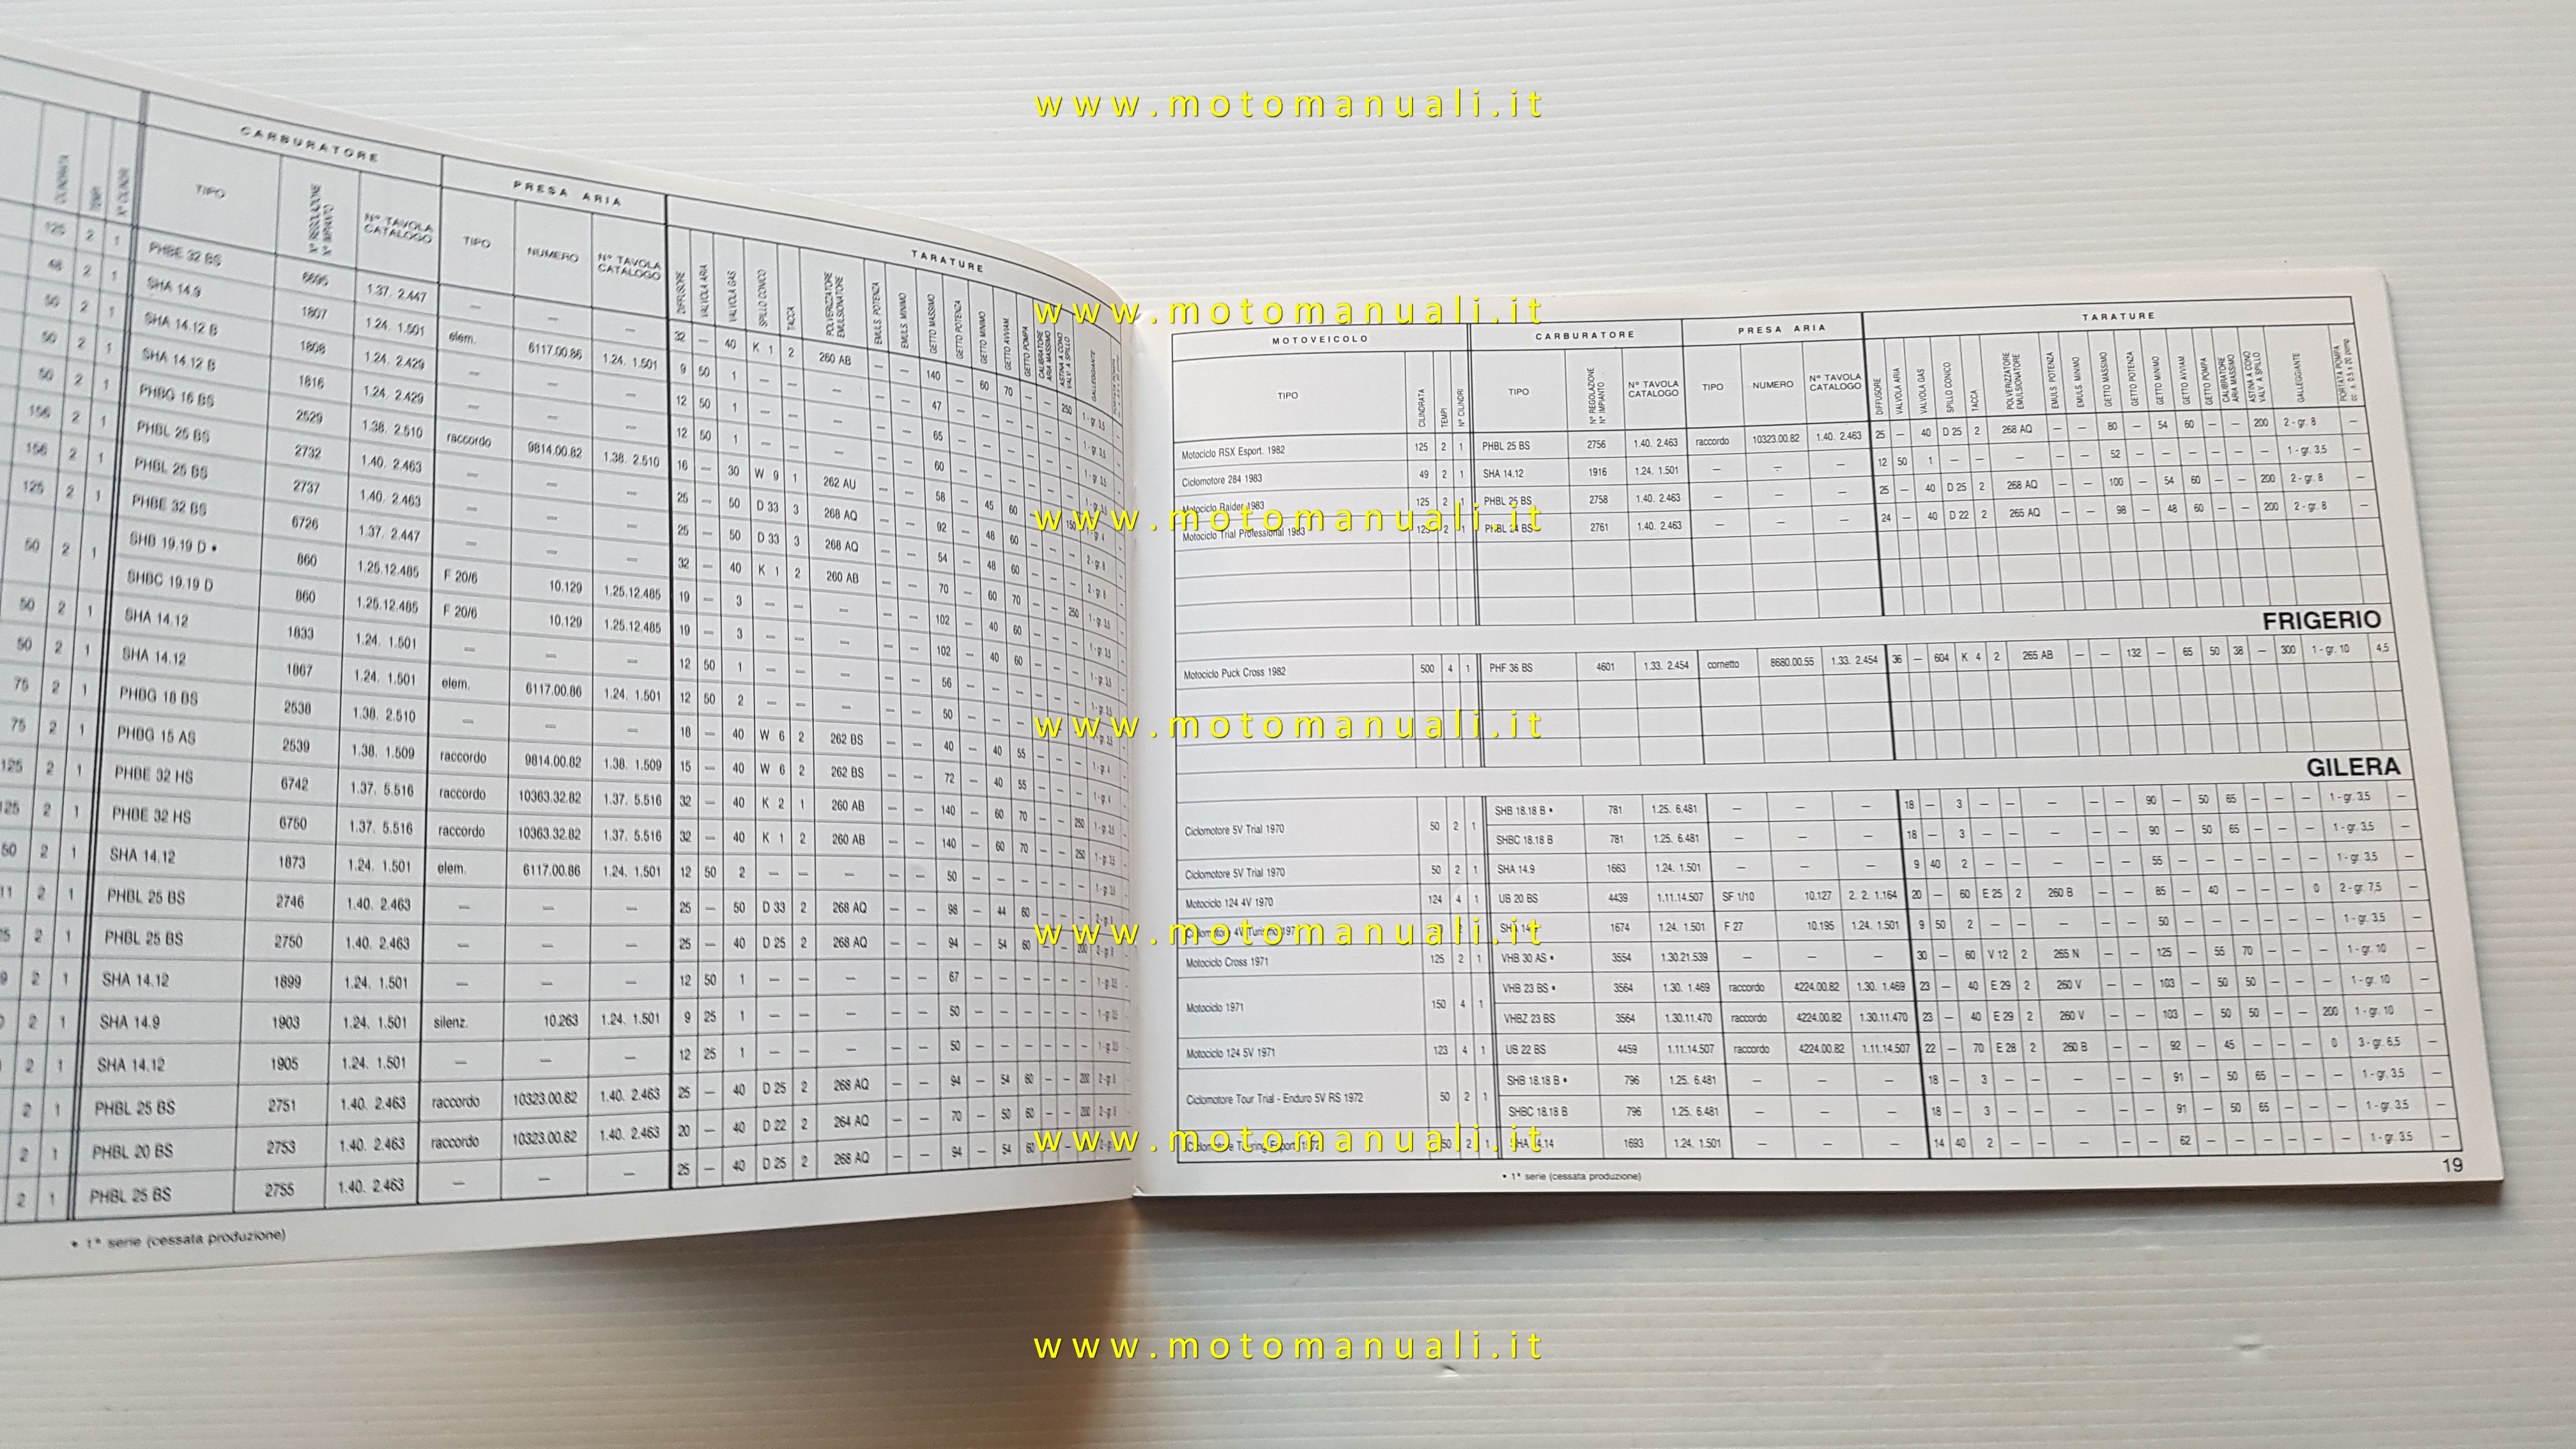 www.motomanuali.it
CARBURATORE PRESA ARIA TARATURE
CILINDRATA TEMPI N° CILINDRI TIPO N° REGOLAZIONE N° IMPIANTO N° TAVOLA CATALOGO TIPO NUMERO N° TAVOLA CATALOGO DIFFUSORE VALVOLA ARIA VALVOLA GAS SPILLO CONICO TACCA POLVERIZZATORE EMULSIONATORE EMULS. POTENZA EMULS. MINIMO GETTO MASSIMO GETTO POTENZA GETTO MINIMO GETTO AVVIAM. GETTO POMPA CALIBRATORE ARIA MASSIMO ASTINA A CONO VALV. A SPILLO GALLEGGIANTE
125 2 1 PHBE 32 BS 6695 1.37. 2.447 — — — 32 — 40 K 1 2 260 AB — — 140 — 60 70 — — 250 1 - gr. 3,5
48 2 1 SHA 14.9 1807 1.24. 1.501 elem. 6117.00.86 1.24. 1.501 9 50 1 — — — — — 47
50 2 1 SHA 14.12 B 1808 1.24. 2.429 — — — 12 50 1 — — — — — 65
50 2 1 SHA 14.12 B 1816 1.24. 2.429 — — — 12 50 1 — — — — — 60
50 2 1 PHBG 16 BS 2529 1.38. 2.510 raccordo 9814.00.82 1.38. 2.510 16 — 30 W 9 1 262 AU — — 58 — 45 60 — — 150 1 - gr. 4
156 2 1 PHBL 25 BS 2732 1.40. 2.463 — — — 25 — 50 D 33 3 268 AQ — — 92 — 48 60
156 2 1 PHBL 25 BS 2737 1.40. 2.463 — — — 25 — 50 D 33 3 268 AQ — — 54 — 48 60
125 2 1 PHBE 32 BS 6726 1.37. 2.447 — — — 32 — 40 K 1 2 260 AB — — 70 — 60 70 — — 250
50 2 1 SHB 19.19 D • 860 1.25.12.485 F 20/6 10.129 1.25.12.485 19 — 3 — — — — — 102 — 40 60
SHBC 19.19 D 860 1.25.12.485 F 20/6 10.129 1.25.12.485 19 — 3 — — — — — 102 — 40 60
50 2 1 SHA 14.12 1833 1.24. 1.501 — — — 12 50 1 — — — — — 56
50 2 1 SHA 14.12 1867 1.24. 1.501 elem. 6117.00.86 1.24. 1.501 12 50 2 — — — — — 50
75 2 1 PHBG 18 BS 2538 1.38. 2.510 — — — 18 — 40 W 6 2 262 BS — — 40 — 40 55
75 2 1 PHBG 15 AS 2539 1.38. 1.509 raccordo 9814.00.82 1.38. 1.509 15 — 40 W 6 2 262 BS — — 72 — 40 55
125 2 1 PHBE 32 HS 6742 1.37. 5.516 raccordo 10363.32.82 1.37. 5.516 32 — 40 K 2 1 260 AB — — 140 — 60 70 — — 250
125 2 1 PHBE 32 HS 6750 1.37. 5.516 raccordo 10363.32.82 1.37. 5.516 32 — 40 K 1 2 260 AB — — 140 — 60 70 — — 250
50 2 1 SHA 14.12 1873 1.24. 1.501 elem. 6117.00.86 1.24. 1.501 12 50 2 — — — — — 50
11 2 1 PHBL 25 BS 2746 1.40. 2.463 — — — 25 — 50 D 33 2 268 AQ — — 98 — 44 60
5 2 1 PHBL 25 BS 2750 1.40. 2.463 — — — 25 — 40 D 25 2 268 AQ — — 94 — 54 60 — — 200
9 2 1 SHA 14.12 1899 1.24. 1.501 — — — 12 50 1 — — — — — 67
2 1 SHA 14.9 1903 1.24. 1.501 silenz. 10.263 1.24. 1.501 9 25 1 — — — — — 50
2 1 SHA 14.12 1905 1.24. 1.501 — — — 12 25 1 — — — — — 50
2 1 PHBL 25 BS 2751 1.40. 2.463 raccordo 10323.00.82 1.40. 2.463 25 — 40 D 25 2 268 AQ — — 94 — 54 60 — — 200
2 1 PHBL 20 BS 2753 1.40. 2.463 raccordo 10323.00.82 1.40. 2.463 20 — 40 D 22 2 264 AQ — — 70 — 50 60 — — 200
2 1 PHBL 25 BS 2755 1.40. 2.463 — — — 25 — 40 D 25 2 268 AQ — — 94 — 54 60
• 1ª serie (cessata produzione)
www.motomanuali.it
MOTOVEICOLO CARBURATORE PRESA ARIA TARATURE
TIPO CILINDRATA TEMPI N° CILINDRI TIPO N° REGOLAZIONE N° IMPIANTO N° TAVOLA CATALOGO TIPO NUMERO N° TAVOLA CATALOGO DIFFUSORE VALVOLA ARIA VALVOLA GAS SPILLO CONICO TACCA POLVERIZZATORE EMULSIONATORE EMULS. POTENZA EMULS. MINIMO GETTO MASSIMO GETTO POTENZA GETTO MINIMO GETTO AVVIAM. GETTO POMPA CALIBRATORE ARIA MASSIMO ASTINA A CONO VALV. A SPILLO GALLEGGIANTE PORTATA POMPA cc ± 0,5 x 20 pomp.
Motociclo RSX Esport. 1982 125 2 1 PHBL 25 BS 2756 1.40. 2.463 raccordo 10323.00.82 1.40. 2.463 25 — 40 D 25 2 268 AQ — — 80 — 54 60 — — 200 2 - gr. 8 —
Ciclomotore 284 1983 49 2 1 SHA 14.12 1916 1.24. 1.501 — — — 12 50 1 — — — — — 52 — — — — — — 1 - gr. 3,5 —
Motociclo Raider 1983 125 2 1 PHBL 25 BS 2758 1.40. 2.463 — — — 25 — 40 D 25 2 268 AQ — — 100 — 54 60 — — 200 2 - gr. 8 —
www.motomanuali.it
Motociclo Trial Professional 1983 125 2 1 PHBL 24 BS 2761 1.40. 2.463 — — — 24 — 40 D 22 2 265 AQ — — 98 — 48 60 — — 200 2 - gr. 8 —
FRIGERIO
Motociclo Puck Cross 1982 500 4 1 PHF 36 BS 4601 1.33. 2.454 cornetto 8680.00.55 1.33. 2.454 36 — 604 K 4 2 265 AB — — 132 — 65 50 38 — 300 1 - gr. 10 4,5
www.motomanuali.it
GILERA
Ciclomotore 5V Trial 1970 50 2 1 SHB 18.18 B • 781 1.25. 6.481 — — — 18 — 3 — — — — — 90 — 50 65 — — — 1 - gr. 3,5 —
SHBC 18.18 B 781 1.25. 6.481 — — — 18 — 3 — — — — — 90 — 50 65 — — — 1 - gr. 3,5 —
Ciclomotore 5V Trial 1970 50 2 1 SHA 14.9 1663 1.24. 1.501 — — — 9 40 2 — — — — — 55 — — — — — — 1 - gr. 3,5 —
Motociclo 124 4V 1970 124 4 1 UB 20 BS 4439 1.11.14.507 SF 1/10 10.127 2. 2. 1.164 20 — 60 E 25 2 260 B — — 85 — 40 — — — 0 2 - gr. 7,5 —
Ciclomotore 4V Turismo 1674 1.24. 1.501 F 27 10.195 1.24. 1.501 9 50 2 — — — — — 50 — — — — — — 1 - gr. 3,5 —
www.motomanuali.it
Motociclo Cross 1971 125 2 1 VHB 30 AS • 3554 1.30.21.539 — — — 30 — 60 V 12 2 265 N — — 125 — 55 70 — — — 1 - gr. 10 —
Motociclo 1971 150 4 1 VHB 23 BS • 3564 1.30. 1.469 raccordo 4224.00.82 1.30. 1.469 23 — 40 E 29 2 260 V — — 103 — 50 50 — — — 1 - gr. 10 —
VHBZ 23 BS 3564 1.30.11.470 raccordo 4224.00.82 1.30.11.470 23 — 40 E 29 2 260 V — — 103 — 50 50 — — 200 1 - gr. 10 —
Motociclo 124 5V 1971 123 4 1 UB 22 BS 4459 1.11.14.507 raccordo 4224.00.82 1.11.14.507 22 — 70 E 28 2 260 B — — 92 — 45 — — — 0 3 - gr. 6,5 —
Ciclomotore Tour Trial - Enduro 5V RS 1972 50 2 1 SHB 18.18 B • 796 1.25. 6.481 — — — 18 — 3 — — — — — 91 — 50 65 — — — 1 - gr. 3,5 —
SHBC 18.18 B 796 1.25. 6.481 — — — 18 — 3 — — — — — 91 — 50 65 — — — 1 - gr. 3,5 —
Ciclomotore Touring Esport. 50 2 1 SHA 14.14 1693 1.24. 1.501 — — — 14 40 2 — — — — — 62 — — — — — — 1 - gr. 3,5 —
www.motomanuali.it
• 1ª serie (cessata produzione)
19
www.motomanuali.it